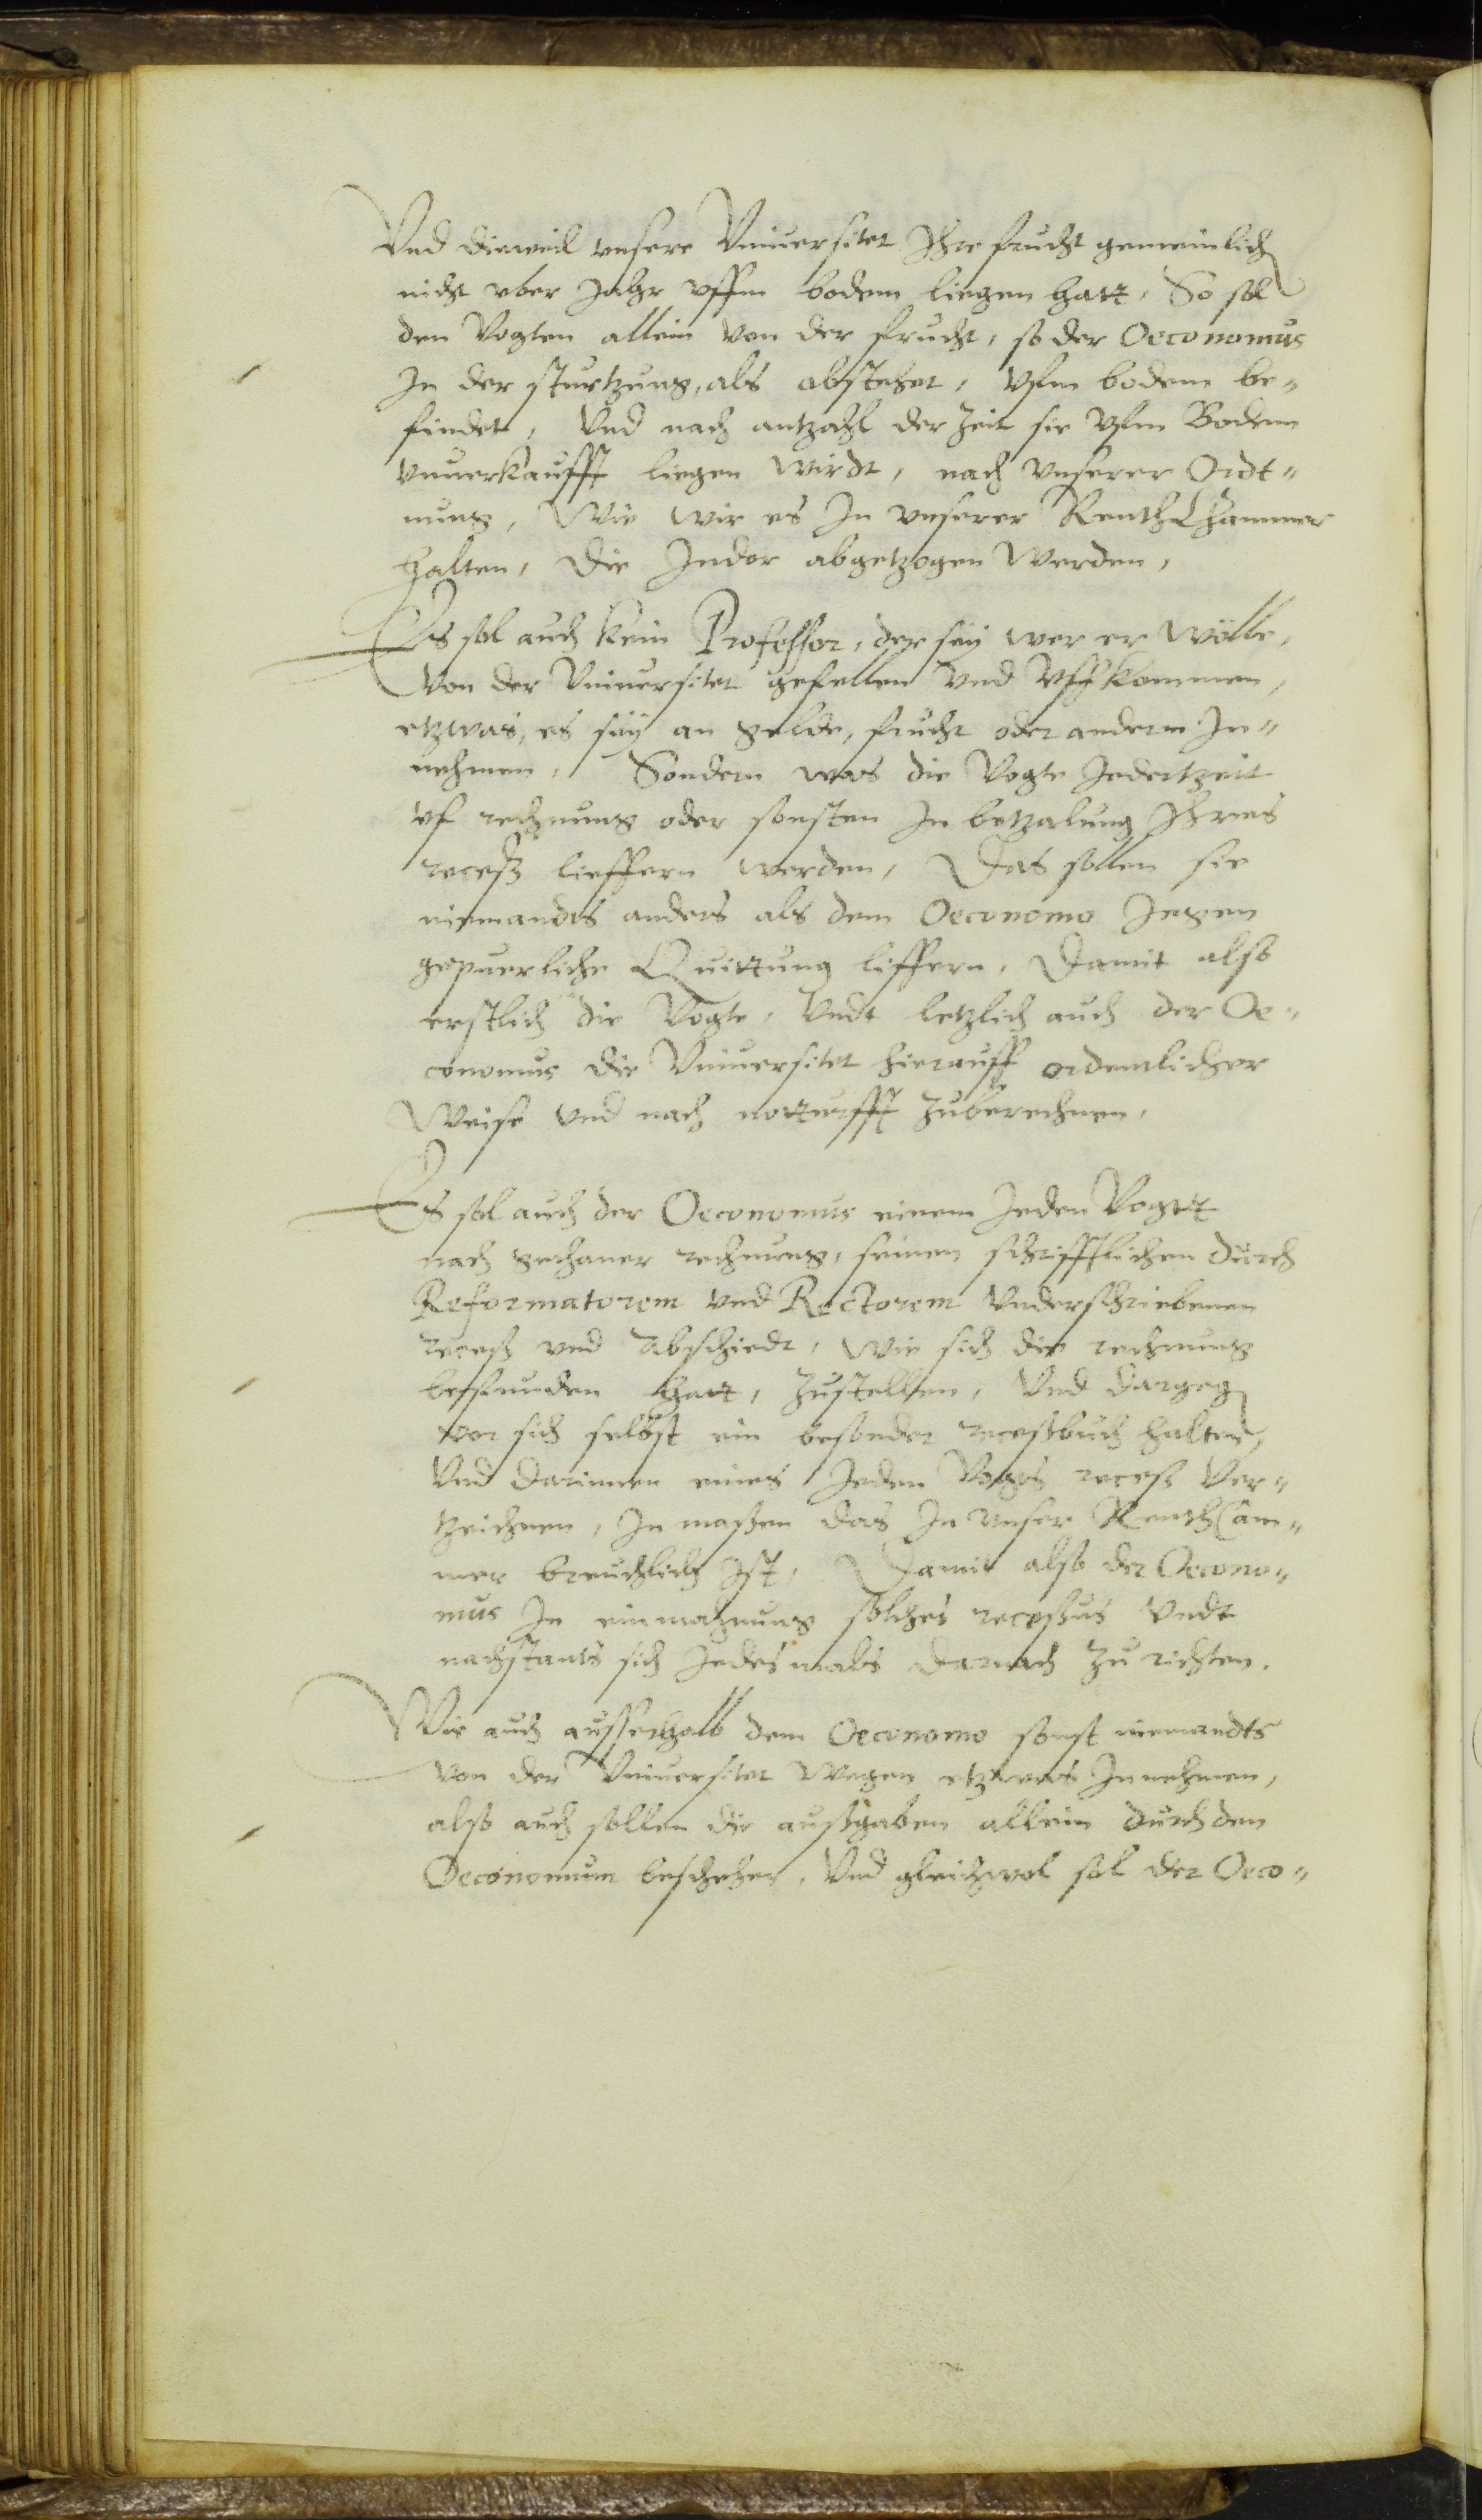 Vnd dieweil vnsere Vniuersitet Ihre frucht gemeinlich
nicht vber Jahr vffm bodem liegen hatt, So sol
den Vogten allein von der frucht, so der Oeconomus
In der sturtzung, als abstehet, vfm bodem be„
findet, Vnd nach antzahl der Zeit sie vfm Bodem
vnuerkaufft liegen wirdt, nach vnserer Ordt„
nung, Wie wir es In vnserer RenthChammer
halten, die Indor abgetzogen werden,
Es sol auch kein Professor, der sëy wer er wölle,
Von der Vniuersitet gefellen vnd Vffkommen,
etzwas, es sëy an gelde, frucht oder anderm In„
nehmen, Sondern was die Vogte Jedertzeit
vf rechnung oder sonsten In betzalung Ihres
receß lieffern werden, Das sollen sie
niemandts anders als dem Oeconomo Jegen
gepuerliche Quittung liffern, Damit also
erstlich die Vögte, Vndt letzlich auch der Oe„
conomus die Vniuersitet hierauff ordentlicher
Weise vnd nach notturfft zuberechnen,
Es sol auch der Oeconomus einem Jeden Vogtt
nach gethaner rechnung, seinen schrifftlichen durch
Reformatorem vnd Rectorem Vnderschriebenen
receß vnd Abschiedt, wie sich die rechnung
befunden hatt, zustellen, Vnd dargeg
vor sich selbst ein besonder receßbuch halten,
Vnd darinnen eines Jeden Vogts receß Ver„
tzeichnen, In maßen das In vnser RenthCam„
mer breuchlich Ist, Damit also der Oecono„
mus In einmahnung solches recessus Vndt
nachstants sich Jedesmals darnach zu richten.
Wie auch ausserhalb dem Oeconomo sonst niemandts
von der Vniuersitet wegen etzwas Innehmen,
also auch sollen die außgaben allein durch den
Oeconomum beschehen, Vnd gleichwol sol der Oeco„